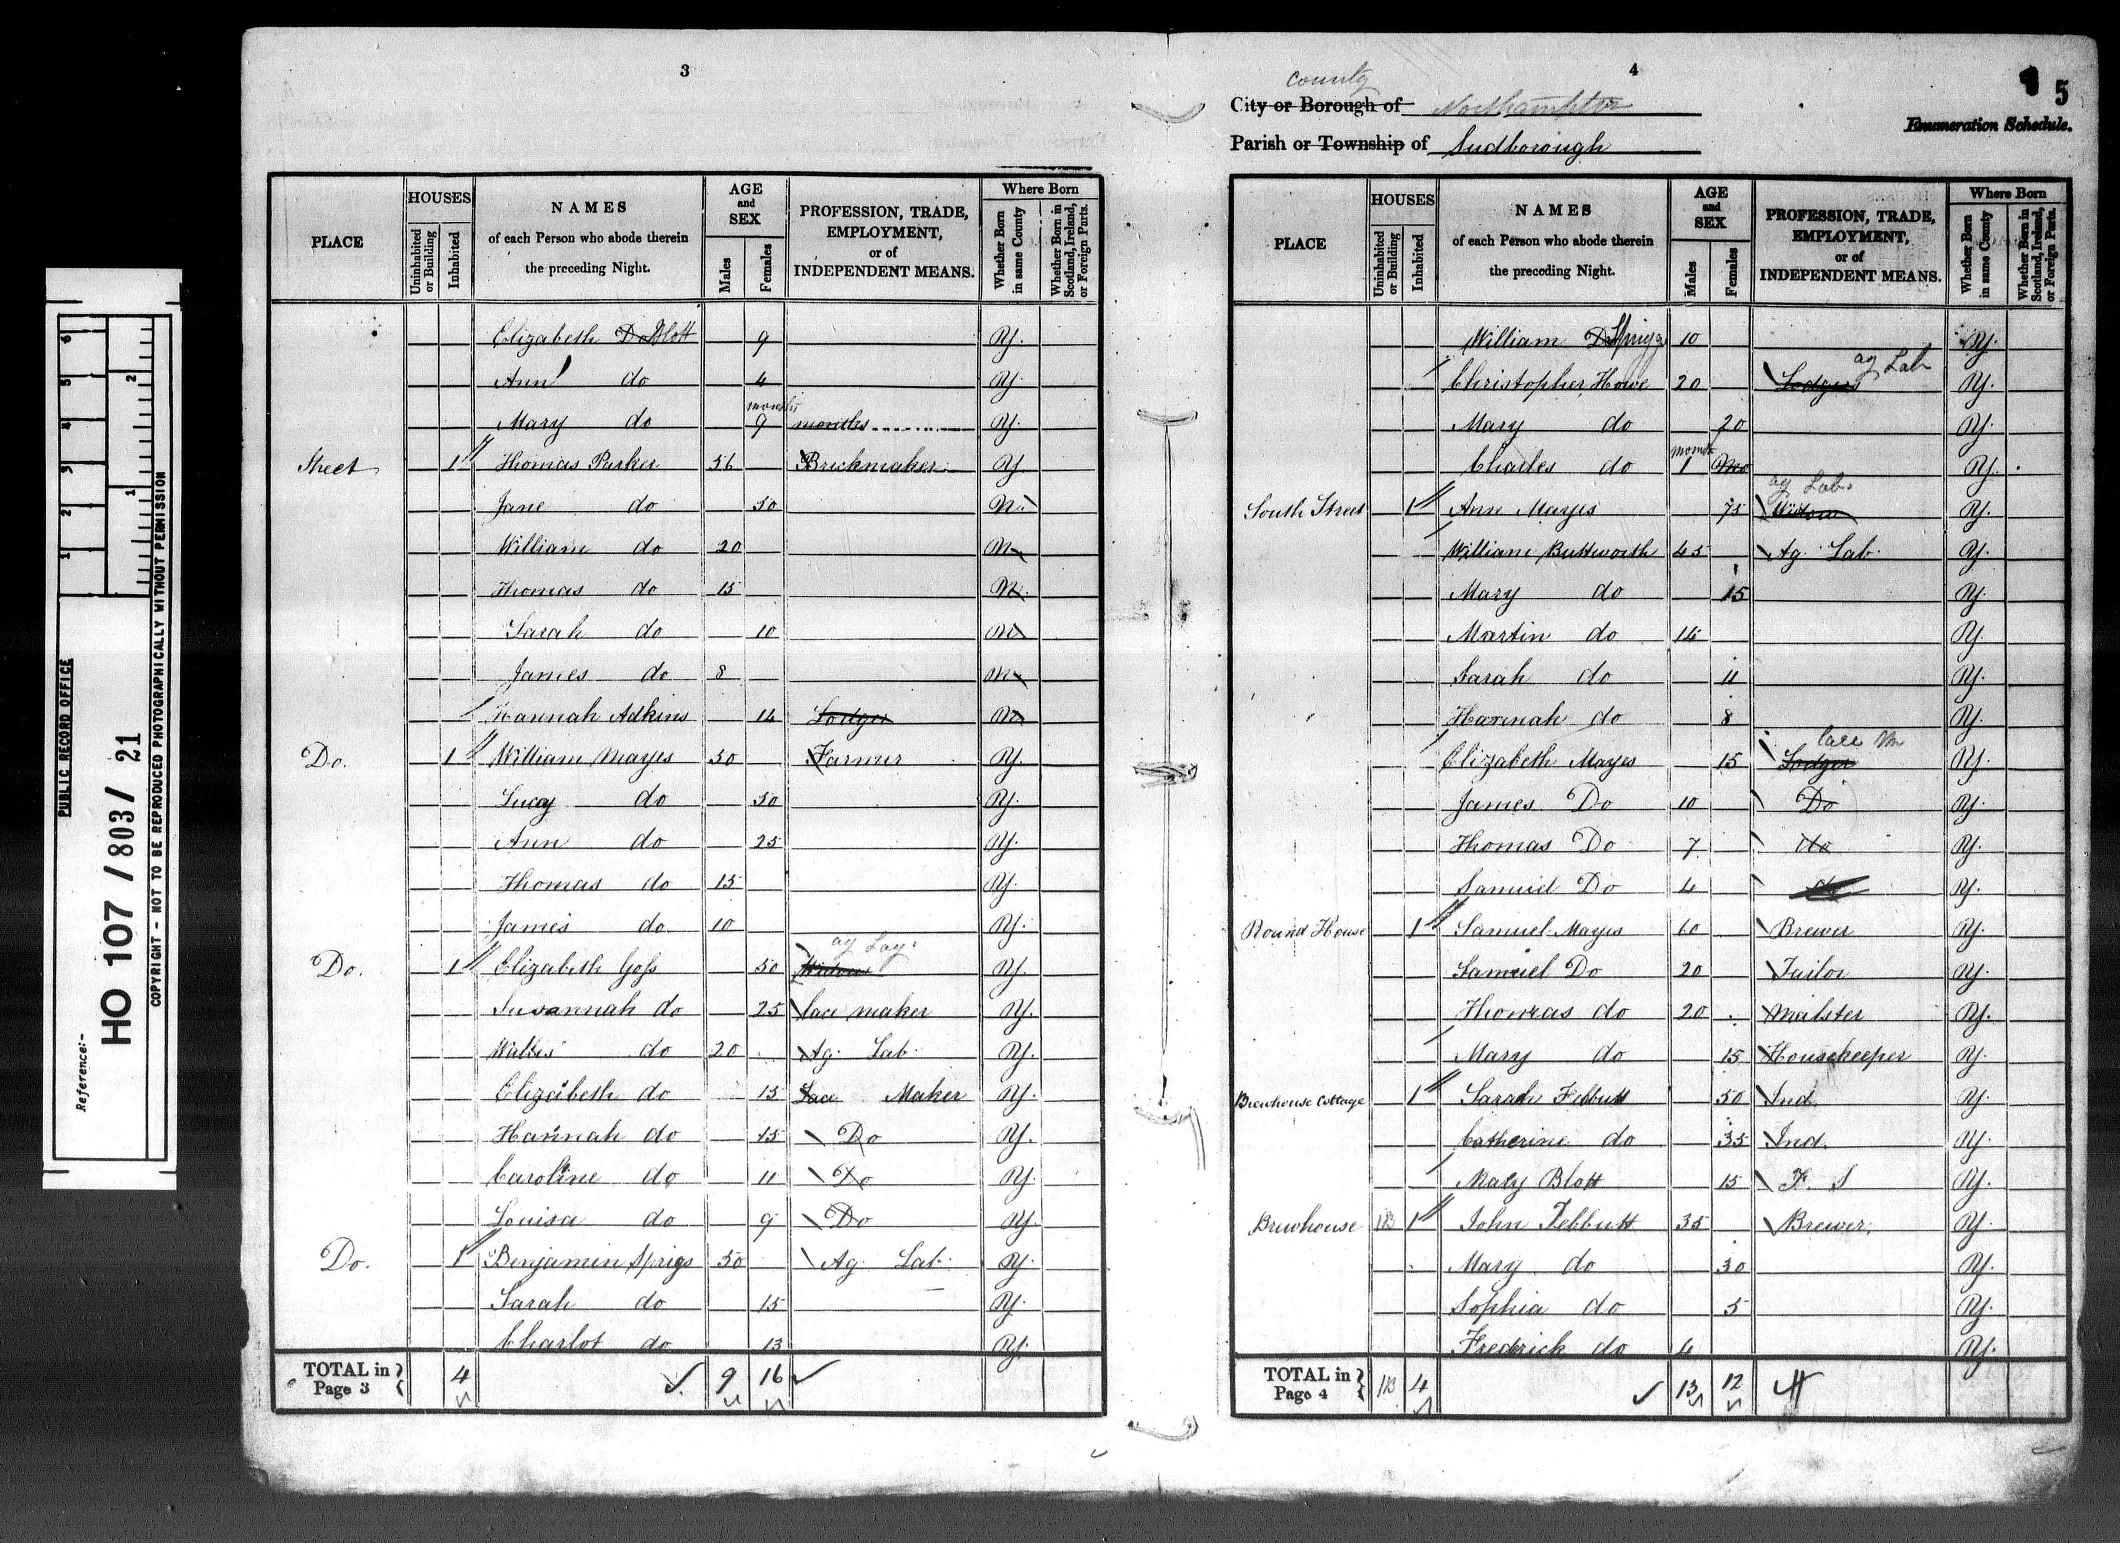 3
PLACE
HOUSES
Uninhabited or Building
Inhabited
NAMES
of each Person who abode therein
the preceding Night.
AGE
and
SEX
Males
Females
PROFESSION, TRADE,
EMPLOYMENT,
or of
INDEPENDENT MEANS.
Where Born
Whether Born in same County
Whether Born in Scotland, Ireland, or Foreign Parts.
Elizabeth Do Blott 9 Y.
Ann do 4 Y.
Mary do 9 months months Y.
Street 1 Thomas Parker 56 Brickmaker Y
Jane do 50 N.
William do 20 N
Thomas do 15 N.
Sarah do 10 N
James do 8 N
Hannah Adkins 14 Lodger N
Do. 1 William Mayes 50 Farmer Y.
Lucy do 50 Y.
Ann do 25 Y.
Thomas do 15 Y.
James do 10 Y.
Do. 1 Elizabeth Goss 50 Widow Y.
Susannah do 25 lace maker Y.
do 20 Ag. Lab. Y.
Elizabeth do 15 Lace Maker Y.
Hannah do 15 Do Y.
Caroline do 11 Do Y.
Louisa do 9 Do Y.
Do. 1 Benjamin Sprigs 50 Ag. Lab. Y.
Sarah do 15 Y.
Charlot do 13 Y.
TOTAL in Page 3 4 9 16
4
5
county
City or Borough of Northampton
Enumeration Schedule.
Parish or Township of Sudborough
PLACE
HOUSES
Uninhabited or Building
Inhabited
NAMES
of each Person who abode therein
the preceding Night.
AGE
and
SEX
Males
Females
PROFESSION, TRADE,
EMPLOYMENT,
or of
INDEPENDENT MEANS.
Where Born
Whether Born in same County
Whether Born in Scotland, Ireland, or Foreign Parts.
William D Sprigg 10 Y.
Christopher Howe 20 Lodgers ag Lab Y.
Mary do 20 Y.
Charles do 1 month Mo Y.
South Street 1 Ann Mayes 75 Widow ag Lab. Y.
William Buttworth 45 Ag. Lab. Y.
Mary do 15 Y.
Martin do 14 Y.
Sarah do 11 Y.
Hannah do 8 Y.
Elizabeth Mayes 15 Lodger lace m Y.
James Do 10 Do Y.
Thomas Do 7 do Y.
Samuel Do 4 do Y.
Round House 1 Samuel Mayes 60 Brewer Y.
Samuel Do 20 Tailor Y.
Thomas do 20 Malster Y.
Mary do 15 Housekeeper Y.
Brewhouse Cottage 1 Sarah Tebbutt 50 Ind. Y.
Catherine do 35 Ind. Y.
Mary Blott 15 F. S Y.
Brewhouse 1B 1 John Tebbutt 35 Brewer. Y.
Mary do 30 Y.
Sophia do 5 Y.
Fredrick do 4 Y.
TOTAL in Page 4 1B 4 13 12
PUBLIC RECORD OFFICE
Reference:-
HO 107 / 803 / 21
COPYRIGHT - NOT TO BE REPRODUCED PHOTOGRAPHICALLY WITHOUT PERMISSION
1 2 3 4 5 6
1 2